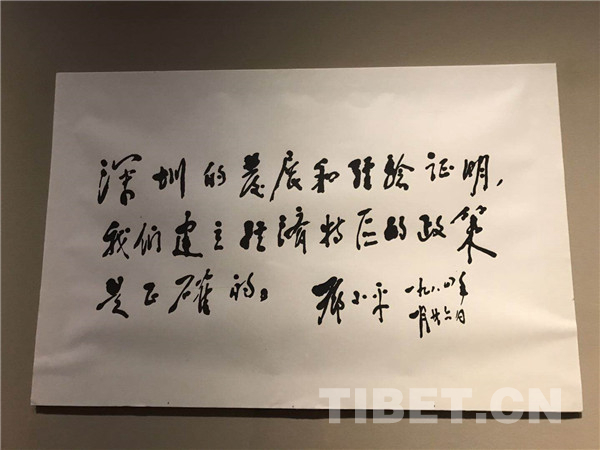 深圳的发展和经验证明，
我们建立经济特区的政策
是正确的。 邓小平 一九八四年
一月廿六日
TIBET.CN